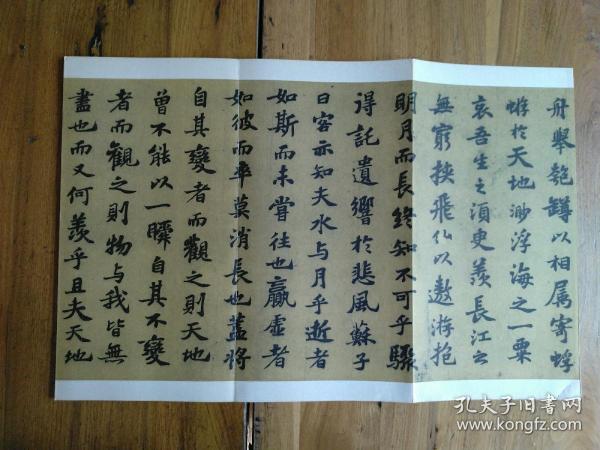 舟舉匏罇以相属寄蜉
蝣於天地渺浮海之一粟
哀吾生之須臾羨長江之
無窮挾飛仙以遨游抱
明月而長終知不可乎驟
得託遺響於悲風蘇子
曰客亦知夫水与月乎逝者
如斯而未嘗往也贏虛者
如彼而卒莫消長也蓋將
自其變者而觀之則天地
曾不能以一瞬自其不變
者而觀之則物与我皆無
盡也而又何羨乎且夫天地
孔夫子旧书网
www.kongfz.com